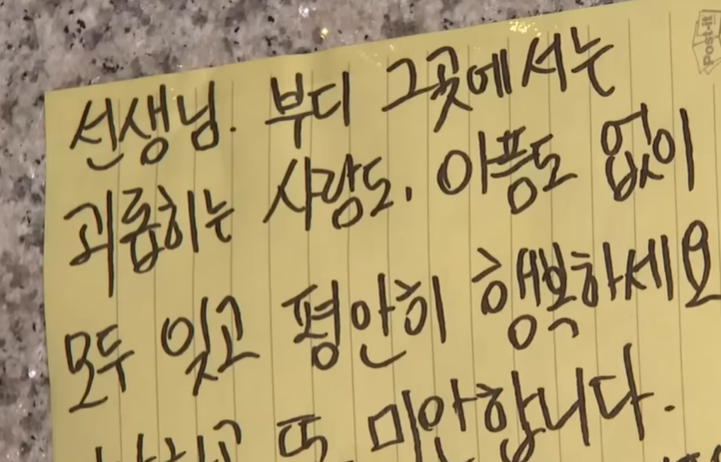 Post-it
선생님. 부디 그곳에서는
괴롭히는 사람도, 아픔도 없이
모두 잊고 평안히 행복하세요
또 미안합니다.